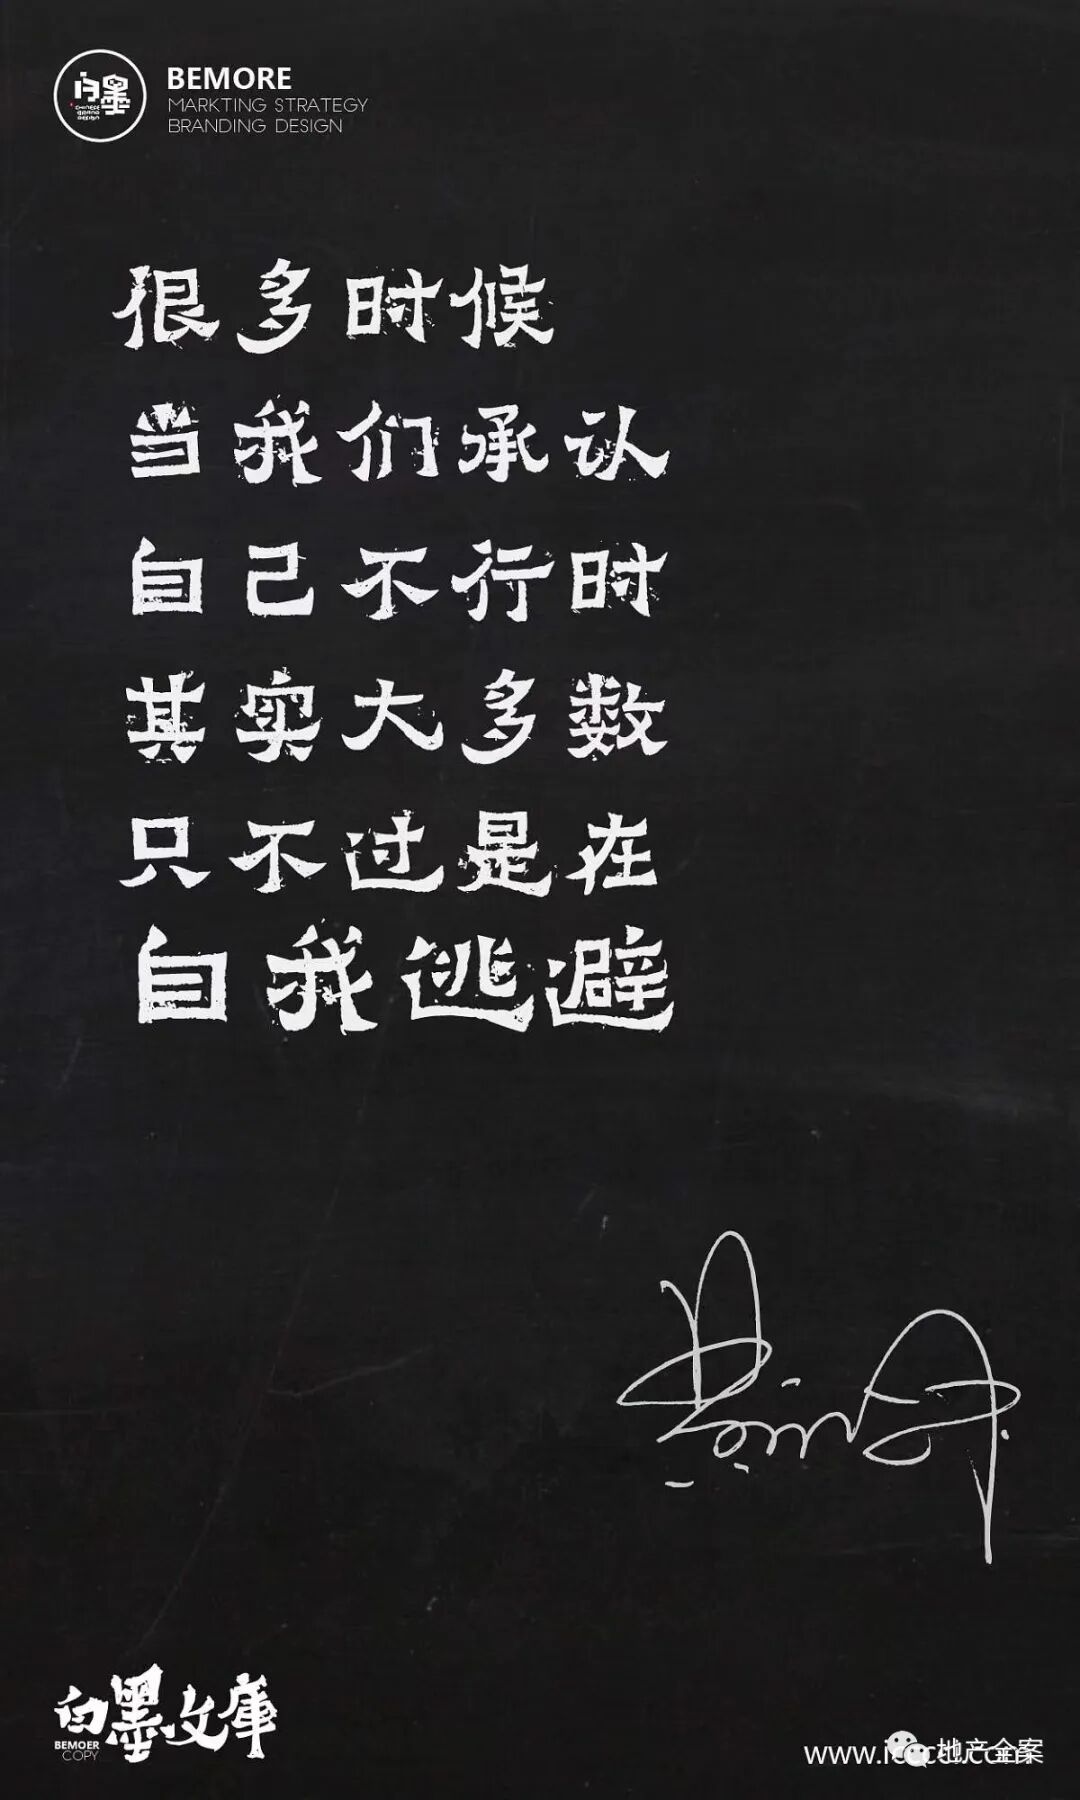 白墨
CHINESE
BRAND
DESIGN
BEMORE
MARKTING STRATEGY
BRANDING DESIGN
很多时候
当我们承认
自己不行时
其实大多数
只不过是在
自我逃避
白墨文庫
BEMOER
COPY
地产全案